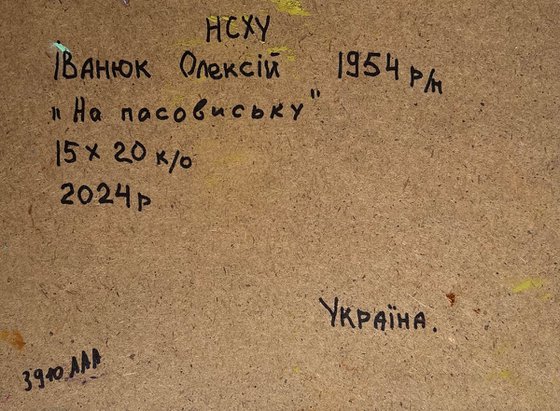 НСХУ
Іванюк Олексій 1954 р/н
"На пасовиську"
15 х 20 к/о
2024р
Україна.
3910 ААА